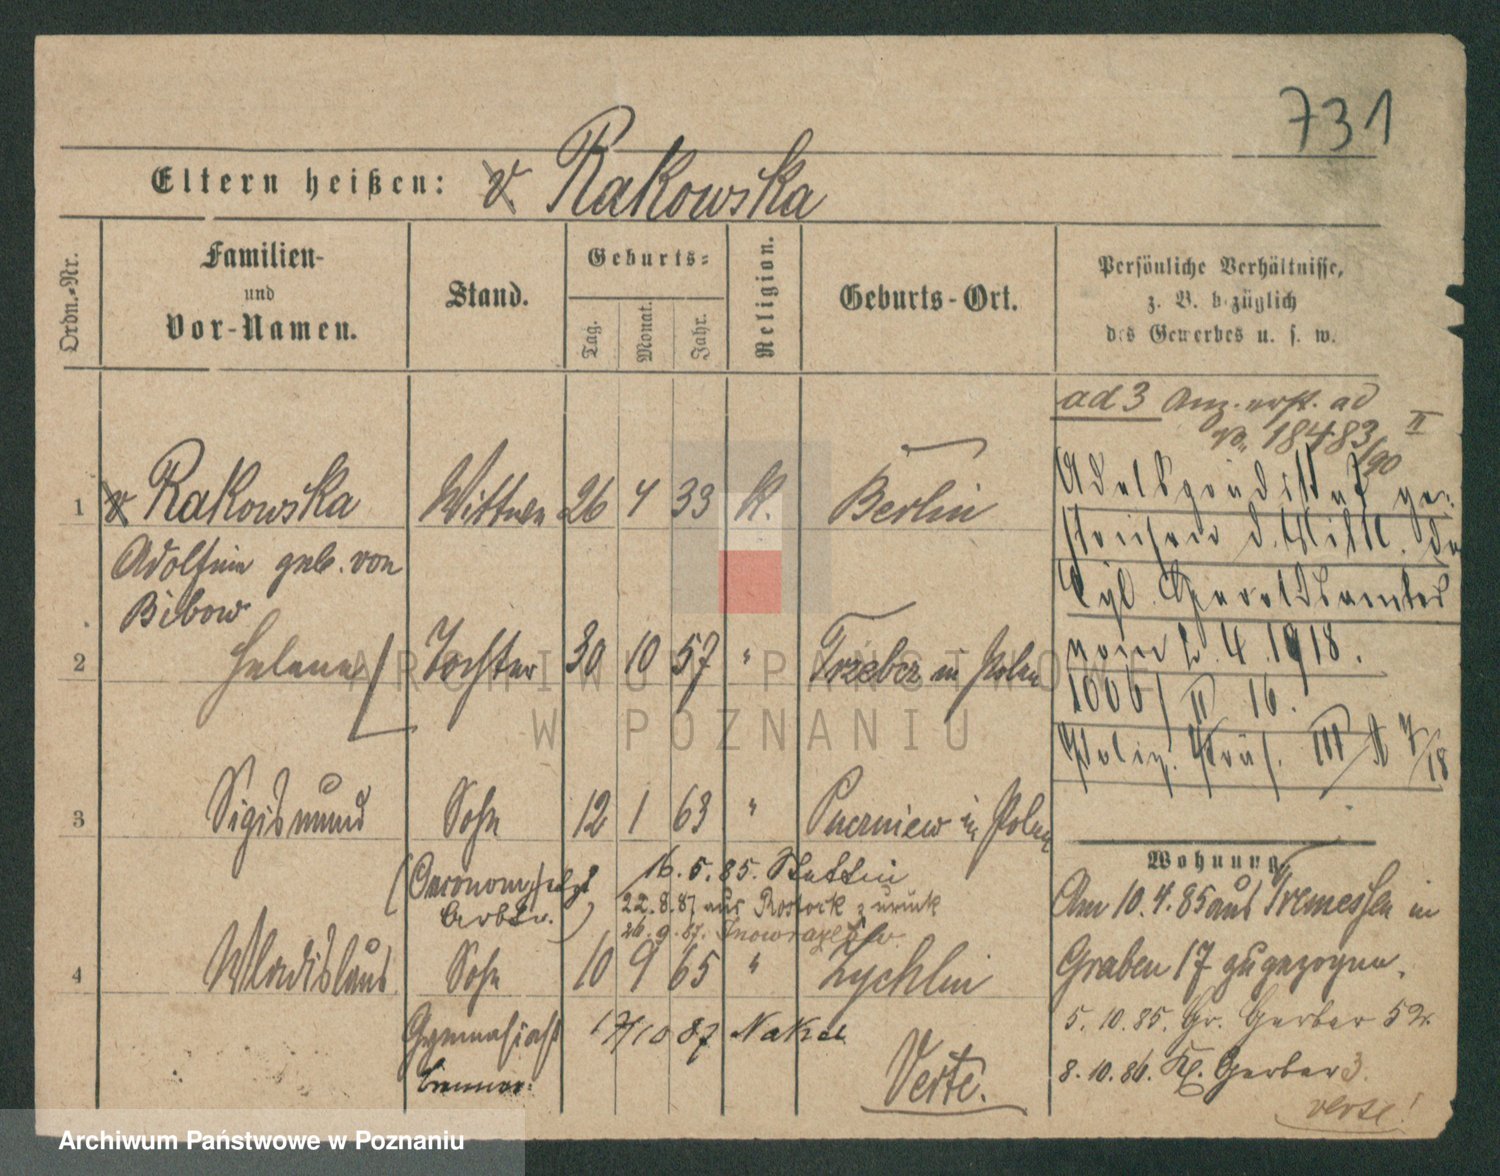 731
Eltern heißen: v Rakowska
Ordn.-Nr.
Familien-
und
Vor-Namen.
Stand.
Geburts-
Tag.
Monat.
Jahr.
Religion.
Geburts-Ort.
Persönliche Verhältnisse,
z. B. bezüglich
des Gewerbes u. s. w.
ad 3 Anz. erst. ad
18483/90 II
1 v Rakowska Wittwe 26 4 33 k. Berlin
Adolfine geb. von
Bibow
2 Helena Tochter 30 10 57 " Trzebcz in Polen
3 Sigismund Sohn 12 1 63 " Pucrniew in Polen
(Oeconom
16.5.85. Stettin
22.8.87 aus Rostock zurück
26.9.87. Inowrazlaw
4 Wladislaus Sohn 10 9 65 " Zychlin
Gymnasiast 17/10 87 Nakel
Verte.
Adelsprädikat ge-
strichen d.
Kgl. Heroldsamtes
vom 2.4.1918.
1006/ II 16.
Poliz. Präs. III A 7/18
Wohnung.
Am 10.4.85 aus Tremessen in
Graben 17 zugezogen.
5.10.85. Gr. Gerber 52.
8.10.86. Kl. Gerber 3.
verte!
ARCHIWUM PAŃSTWOWE
W POZNANIU
Archiwum Państwowe w Poznaniu